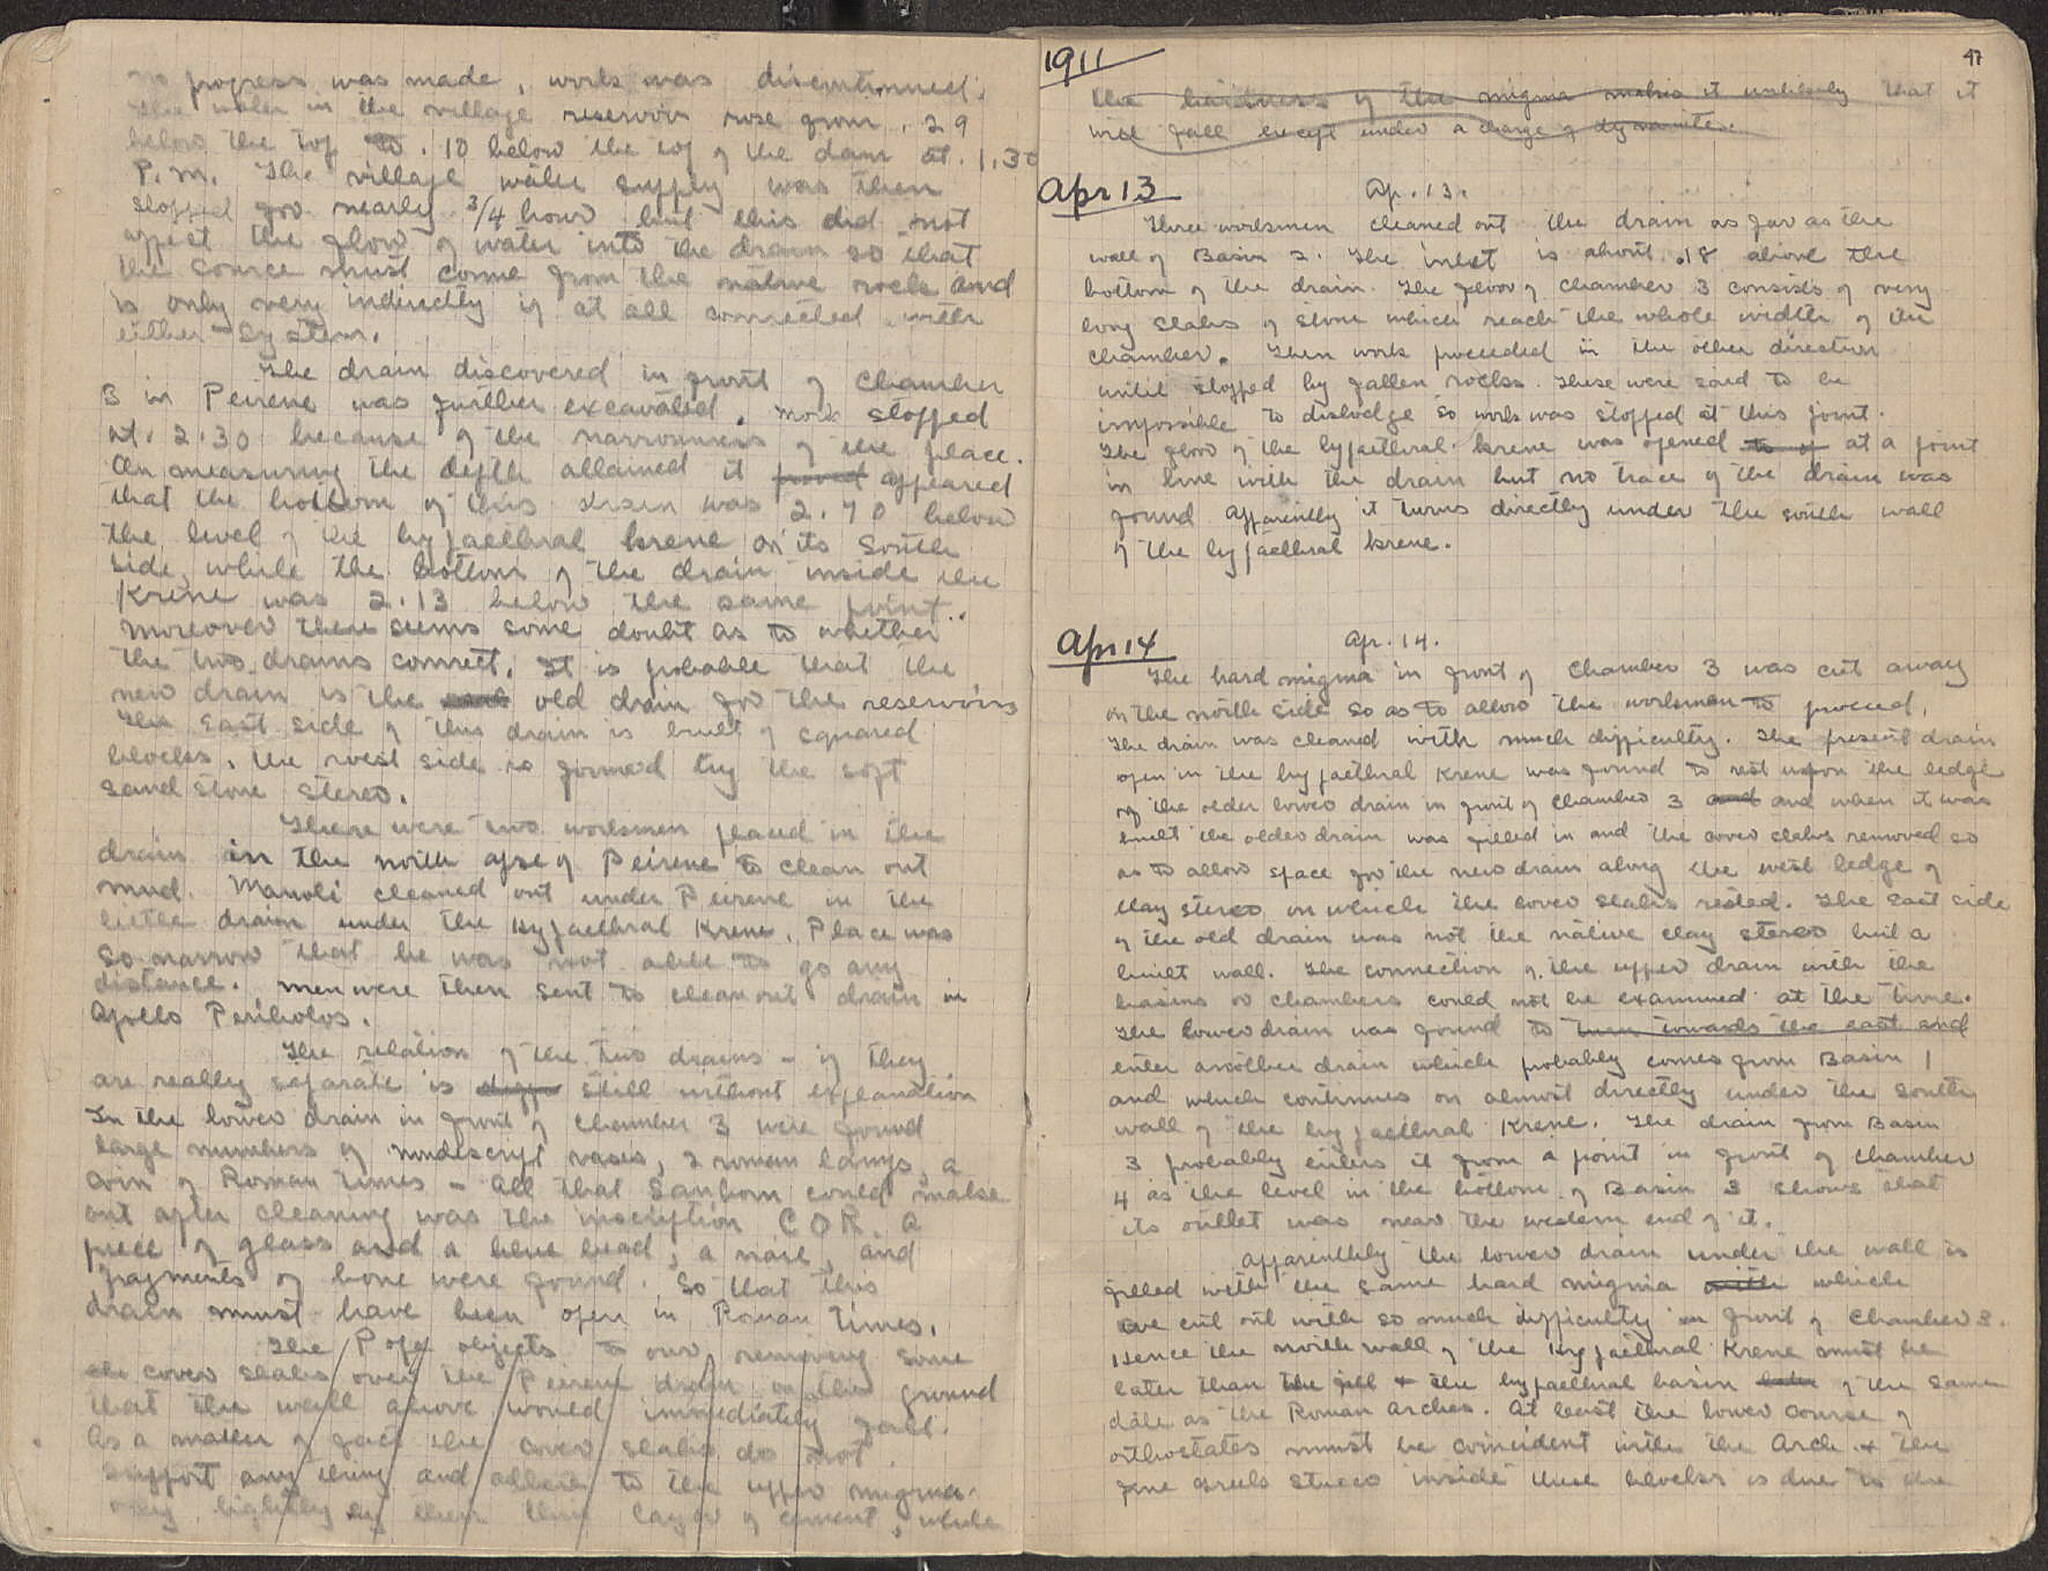 no progress was made, work was discontinued.
The water in the village reservoir rose from .29
below the top to .10 below the top of the dam at 1.30
P.M. The village water supply was then
stopped for nearly 3/4 hour but this did not
affect the flow of water into the drain so that
the source must come from the native rock and
is only very indirectly if at all connected with
either system.
The drain discovered in front of Chamber
3 in Peirene was further excavated. Work stopped
at 2.30 because of the narrowness of the place.
On measuring the depth attained it proved appeared
that the bottom of this drain was 2.70 below
the level of the hypaethral krene on its South
side, while the bottom of the drain inside the
Krene was 2.13 below the same point.
Moreover there seems some doubt as to whether
the two drains connect. It is probable that the
new drain is the old drain for the reservoirs
The East side of this drain is built of squared
blocks, the west side is formed by the soft
sand stone stereo.
There were two workmen placed in the
drain in the north apse of Peirene to clean out
mud. Manoli cleaned out under Peirene in the
little drain under the Hypaethral Krene. Place was
so narrow that he was not able to go any
distance. Men were then sent to clean out drain in
Apollo Peribolos.
The relation of the two drains - if they
are really separate is still without explanation
In the lower drain in front of Chamber 3 were found
large numbers of nondescript vases, 2 roman lamps, a
coin of Roman times - all that Sanborn could make
out after cleaning was the inscription COR. A
piece of glass and a blue bead, a nail, and
fragments of bone were found. So that this
drain must have been open in Roman times.
The Prof objects to our removing some
the cover slabs over the Peirene drain on the ground
that the wall above would immediately fall.
As a matter of fact the cover slabs do not
support any thing and adhere to the upper migma
very lightly by their thin layer of cement, while
1911
47
the hardness of the migma makes it unlikely that it
will fall except under a charge of dynamite.
Apr 13
Ap. 13.
Three workmen cleaned out the drain as far as the
wall of Basin 2. The inlet is about .18 above the
bottom of the drain. The floor of Chamber 3 consists of very
long slabs of stone which reach the whole width of the
chamber. Then work proceeded in the other direction
until stopped by fallen rocks. These were said to be
impossible to dislodge so work was stopped at this point.
The floor of the hypaethral krene was opened to of at a point
in line with the drain but no trace of the drain was
found apparently it turns directly under the south wall
of the hypaethral krene.
Apr 14
Apr. 14.
The hard migma in front of Chamber 3 was cut away
on the north side so as to allow the workman to proceed.
The drain was cleaned with much difficulty. The present drain
open in the hypaethral Krene was found to rest upon the ledge
of the older lower drain in front of Chamber 3 and and when it was
built the older drain was filled in and the cover slabs removed so
as to allow space for the new drain along the west ledge of
clay stereo on which the cover slabs rested. The East side
of the old drain was not the native clay stereo but a
built wall. The connection of the upper drain with the
basins or chambers could not be examined at the time.
The lower drain was found to turn towards the east and
enter another drain which probably comes from Basin 1
and which continues on almost directly under the South
wall of the hypaethral Krene. The drain from Basin
3 probably enters it from a point in front of Chamber
4 as the level in the bottom of Basin 3 shows that
its outlet was near the western end of it.
Apparently the lower drain under the wall is
filled with the same hard migma with which
we cut out with so much difficulty in front of Chamber 3.
Hence the north wall of the Hypaethral Krene must be
later than the fill & the hypaethral basin of the same
date as the Roman Arches. At least the lower course of
orthostates must be coincident with the Arch & the
fine Greek stucco inside these blocks is due to the